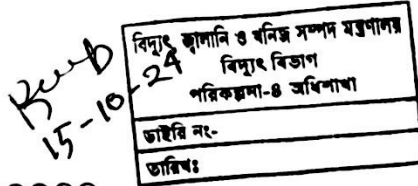 15-10-24
বিদ্যুৎ জ্বালানি ও খনিজ সম্পদ মন্ত্রণালয়
বিদ্যুৎ বিভাগ
পরিকল্পনা-৪ অধিশাখা
ডাইরি নং-
তারিখঃ